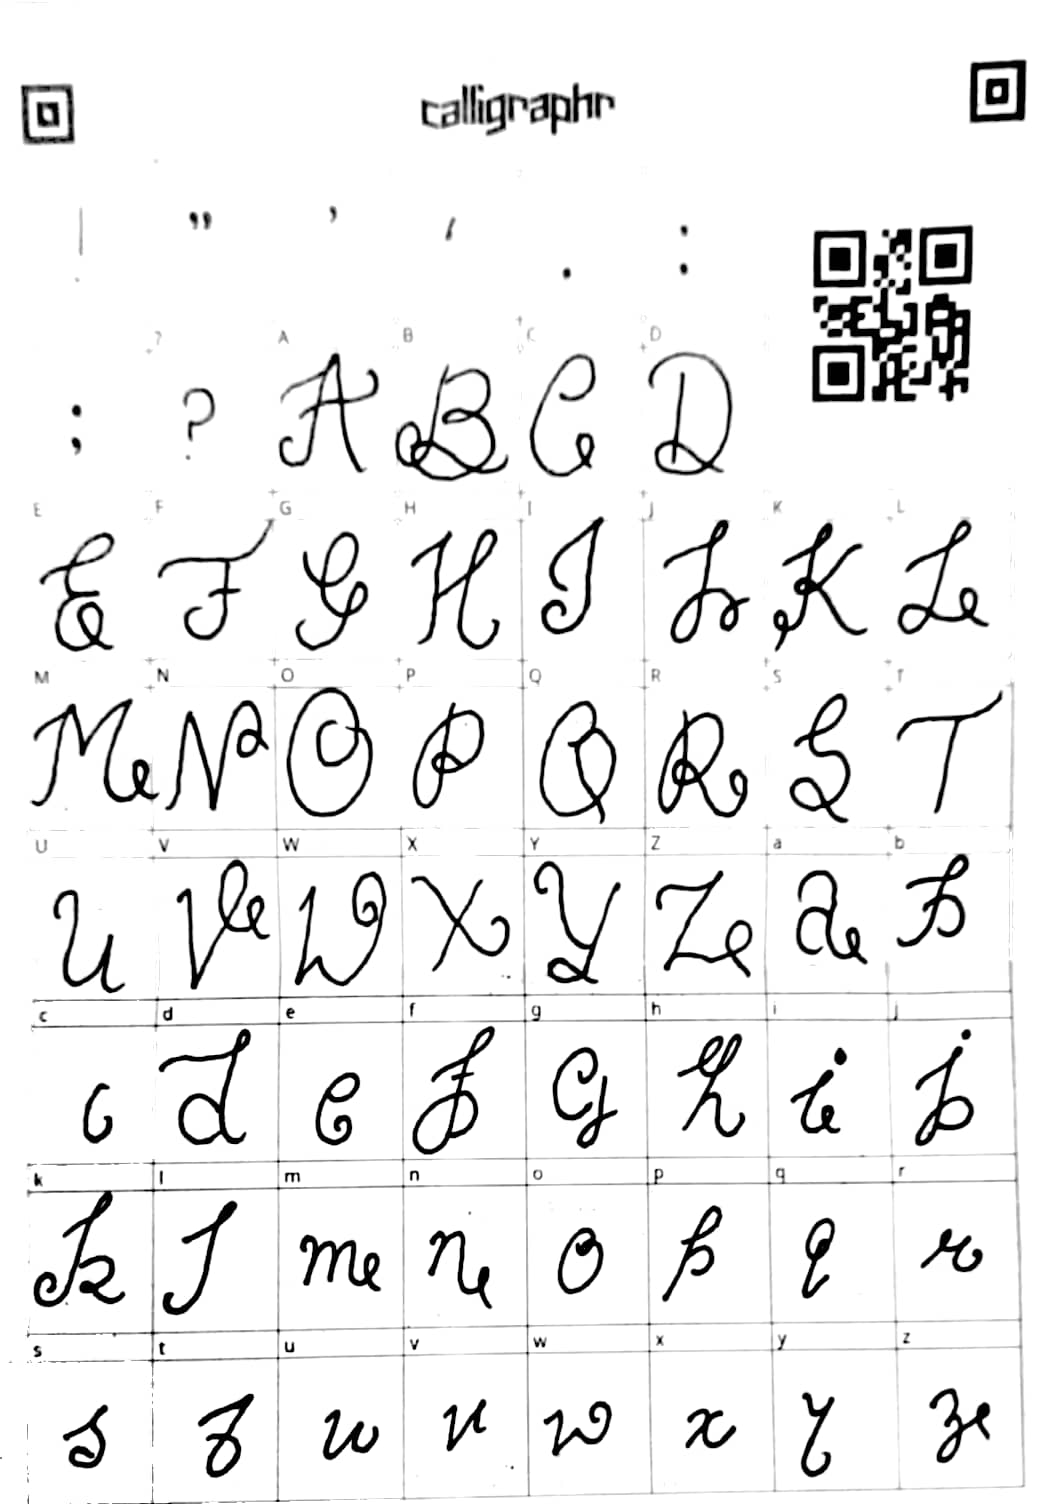 calligraphr
! " ' , . :
? A B C D
; ? A B C D
E F G H I J K L
E F G H I J K L
M N O P Q R S T
M N O P Q R S T
U V W X Y Z a b
U V W X Y Z a b
c d e f g h i j
c d e f g h i j
k l m n o p q r
k l m n o p q r
s t u v w x y z
s t u v w x y z